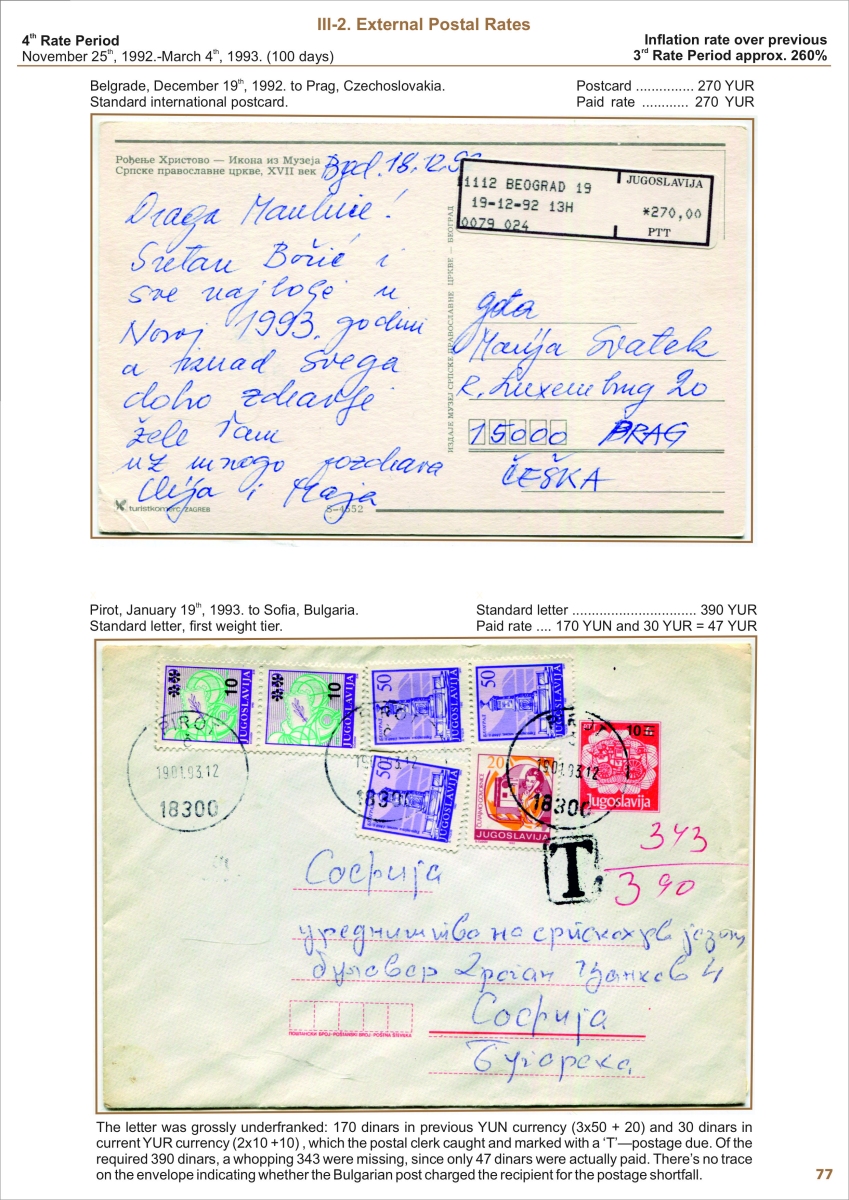 III-2. External Postal Rates
4th Rate Period
November 25th, 1992.-March 4th, 1993. (100 days)
Inflation rate over previous
3rd Rate Period approx. 260%
Belgrade, December 19th, 1992. to Prag, Czechoslovakia.
Standard international postcard.
Postcard ............... 270 YUR
Paid rate ............ 270 YUR
Рођење Христово — Икона из Музеја
Српске православне цркве, XVII век
Bgd. 18.12.92
11112 BEOGRAD 19
19-12-92 13H
0079 024
JUGOSLAVIJA
*270,00
PTT
Draga
Sretan Božić i
sve najbolje u
Novoj 1993. godini
a iznad svega
dobro zdravlje
žele Vam
uz mnogo pozdrava
i Maja
ИЗДАЈЕ МУЗЕЈ СРПСКЕ ПРАВОСЛАВНЕ ЦРКВЕ — БЕОГРАД
gđa
Marija Svatek
R. Luxemburg 20
15000 PRAG
ČEŠKA
turistkomerc/ZAGREB
S-4552
Pirot, January 19th, 1993. to Sofia, Bulgaria.
Standard letter, first weight tier.
Standard letter ................................ 390 YUR
Paid rate .... 170 YUN and 30 YUR = 47 YUR
10
JUGOSLAVIJA
10
JUGOSLAVIJA
50
JUGOSLAVIJA
50
JUGOSLAVIJA
50
JUGOSLAVIJA
20
JUGOSLAVIJA
10
Jugoslavija
PIROT
19.01.93.12
18300
19.01.93.12
18300
19.01.93.12
18300
T
343
390
Софија
уредништва на српскохрв језику
булевар Драган Цанков 4
Софија
Бугарска
ПОШТАНСКИ БРОЈ-POŠTANSKI BROJ-POŠTNA ŠTEVILKA
The letter was grossly underfranked: 170 dinars in previous YUN currency (3x50 + 20) and 30 dinars in
current YUR currency (2x10 +10) , which the postal clerk caught and marked with a ‘T’—postage due. Of the
required 390 dinars, a whopping 343 were missing, since only 47 dinars were actually paid. There’s no trace
on the envelope indicating whether the Bulgarian post charged the recipient for the postage shortfall.
77